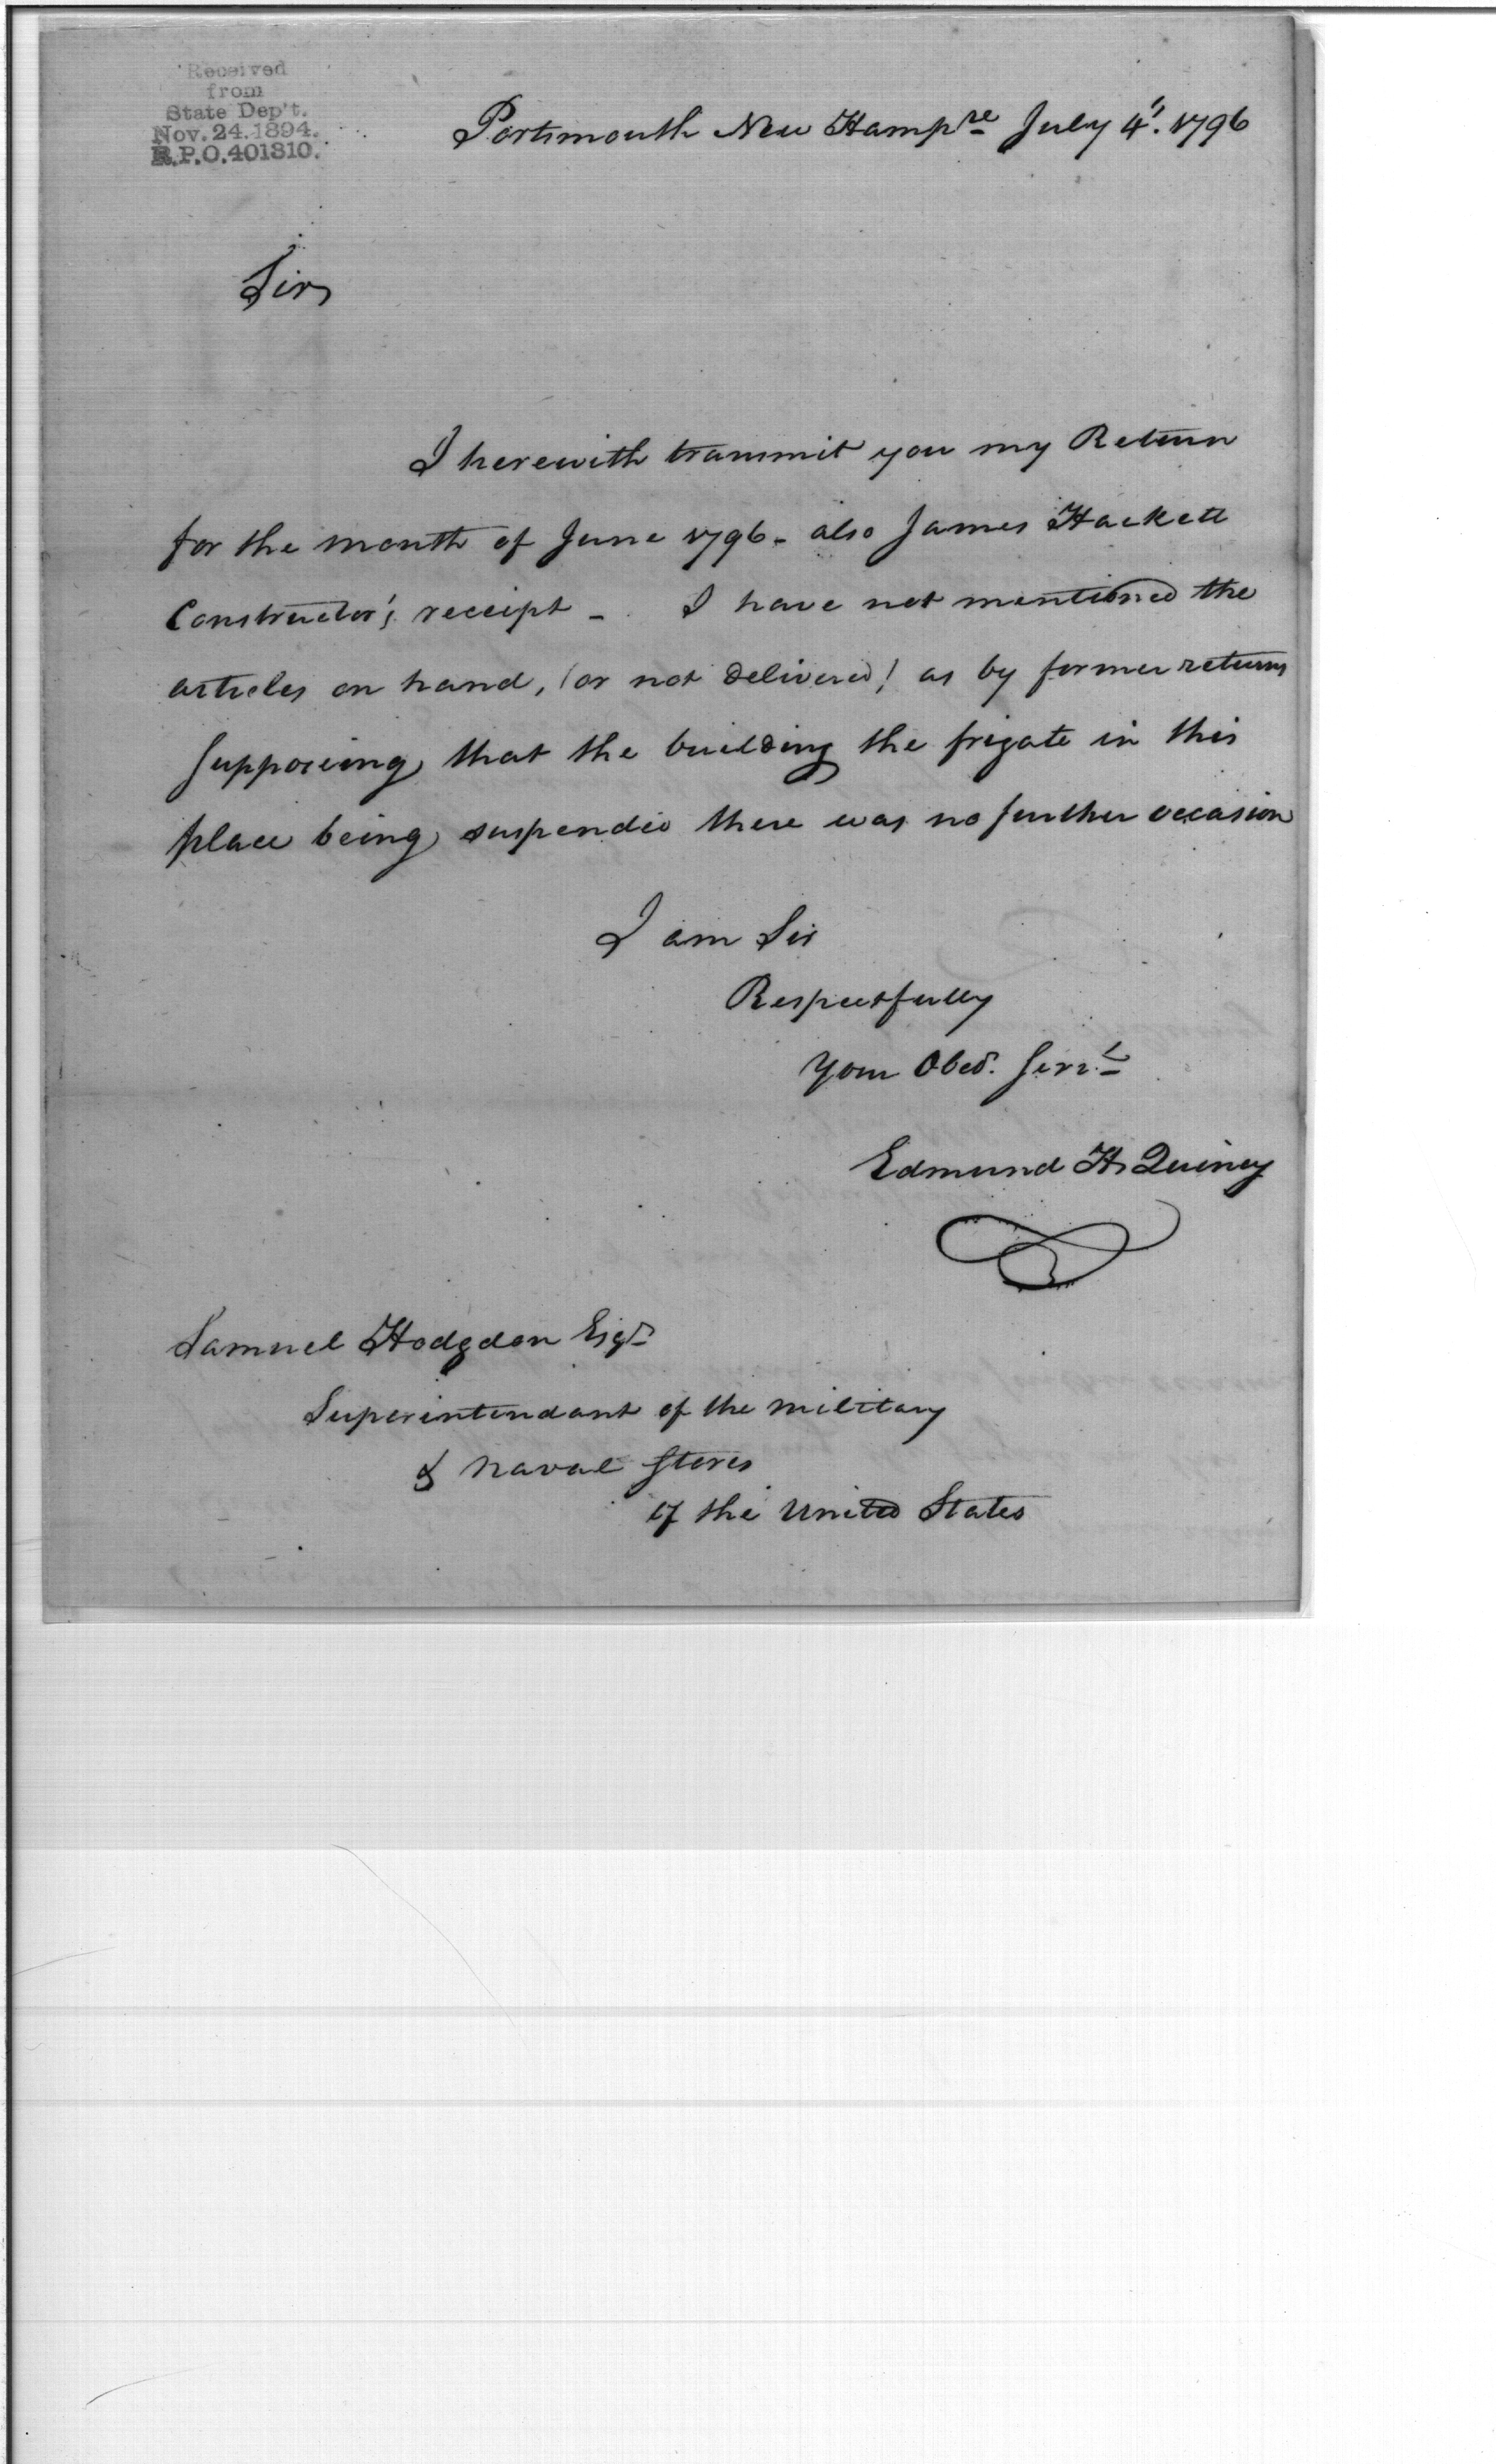 Received
from
State Dep't.
Nov. 24. 1894.
R.P.O. 401310.
Portsmouth New Hampre July 4'. 1796
Sir,
I herewith transmit you my Return
for the month of June 1796 - also James Hackett
Constructor's receipt - I have not mentioned the
articles on hand, (or not delivered) as by former returns
supposeing that the building the frigate in this
place being suspended there was no further occasion
I am Sir
Respectfully
Your Obed. Servt
Edmund H. Quincy
Samuel Hodgdon Esqr
Superintendant of the military
& naval stores
of the United States